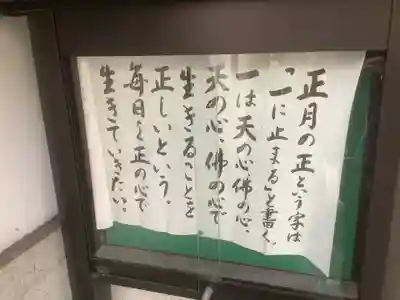 正月の正という字は
「一」に止まると書く。
一は天の心、佛の心、
天の心、佛の心で
生きることを
正しいという。
毎日を正の心で
生きていきたい。